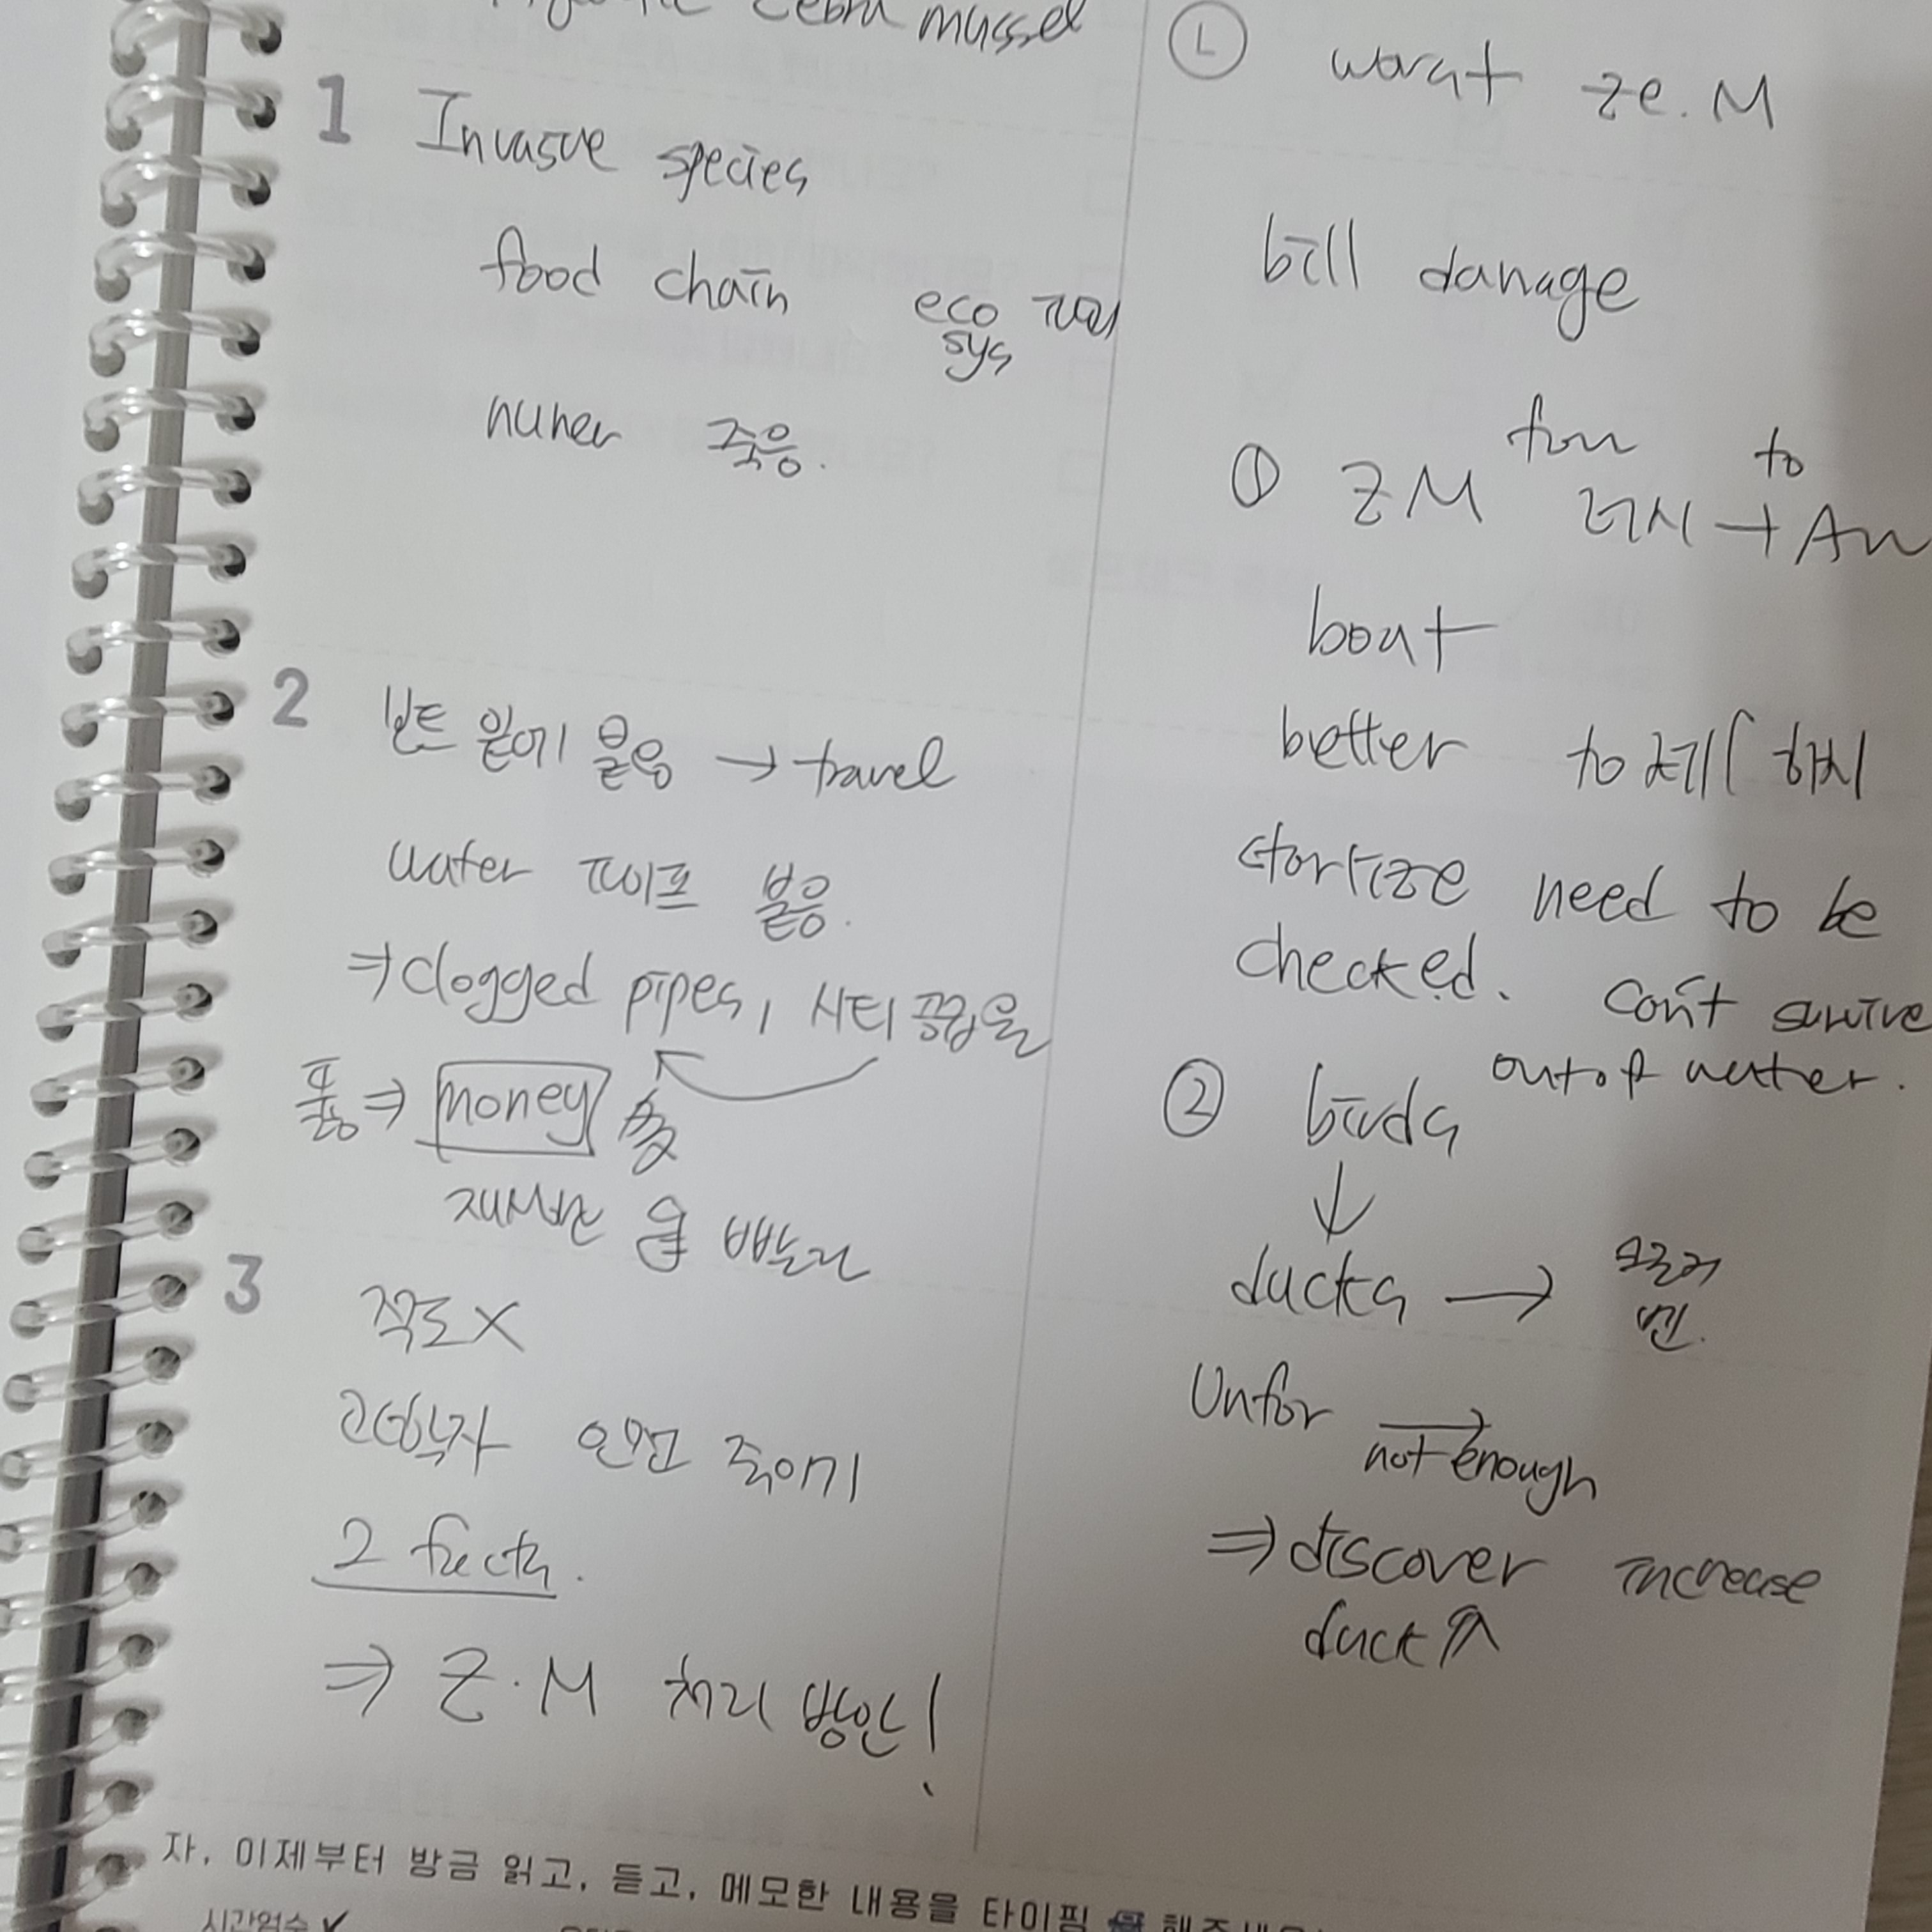 zebra mussel
1 Invasve species
food chain eco 파괴
sys
nuher 죽음.
2 보트 밑에 붙음 → travel
water 파이프 붙음.
⇒ clogged pipes, 시티 끊김 물
폼 ⇒ money 多
재생산 율 빠르다
3 작도 X
과학자 오염 죽이기
2 facts.
⇒ Z.M 처리 방안!
L worst ze.M
bill damage
① ZM from 러시 → to Am
boat
better to 체크 하지
stortize need to be
checked. can't survive
out of water.
② birds
↓
ducks →
Unfor → not enough
⇒ discover increase
duck ↑
자, 이제부터 방금 읽고, 듣고, 메모한 내용을 타이핑
시간엄수 ✓